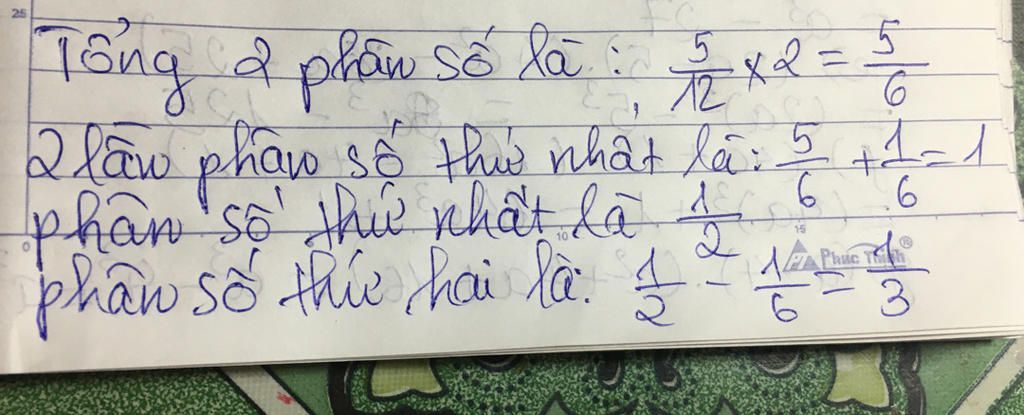 25
Tổng 2 phân số là: 5/12 × 2 = 5/6
2 lần phân số thứ nhất là: 5/6 + 1/6 = 1
phân số thứ nhất là 1/2
0 10 15
Phúc Thịnh®
phân số thứ hai là: 1/2 - 1/6 = 1/3